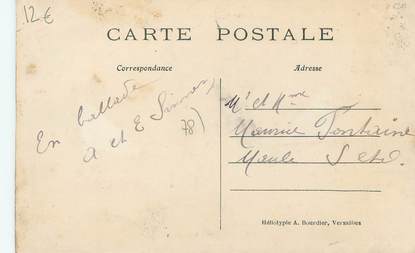 12€
CARTE POSTALE
Correspondance
Adresse
En ballade
A et E
78)
Mr et Mme
Maurice Fontaine
Héliotypie A. Bourdier, Versailles